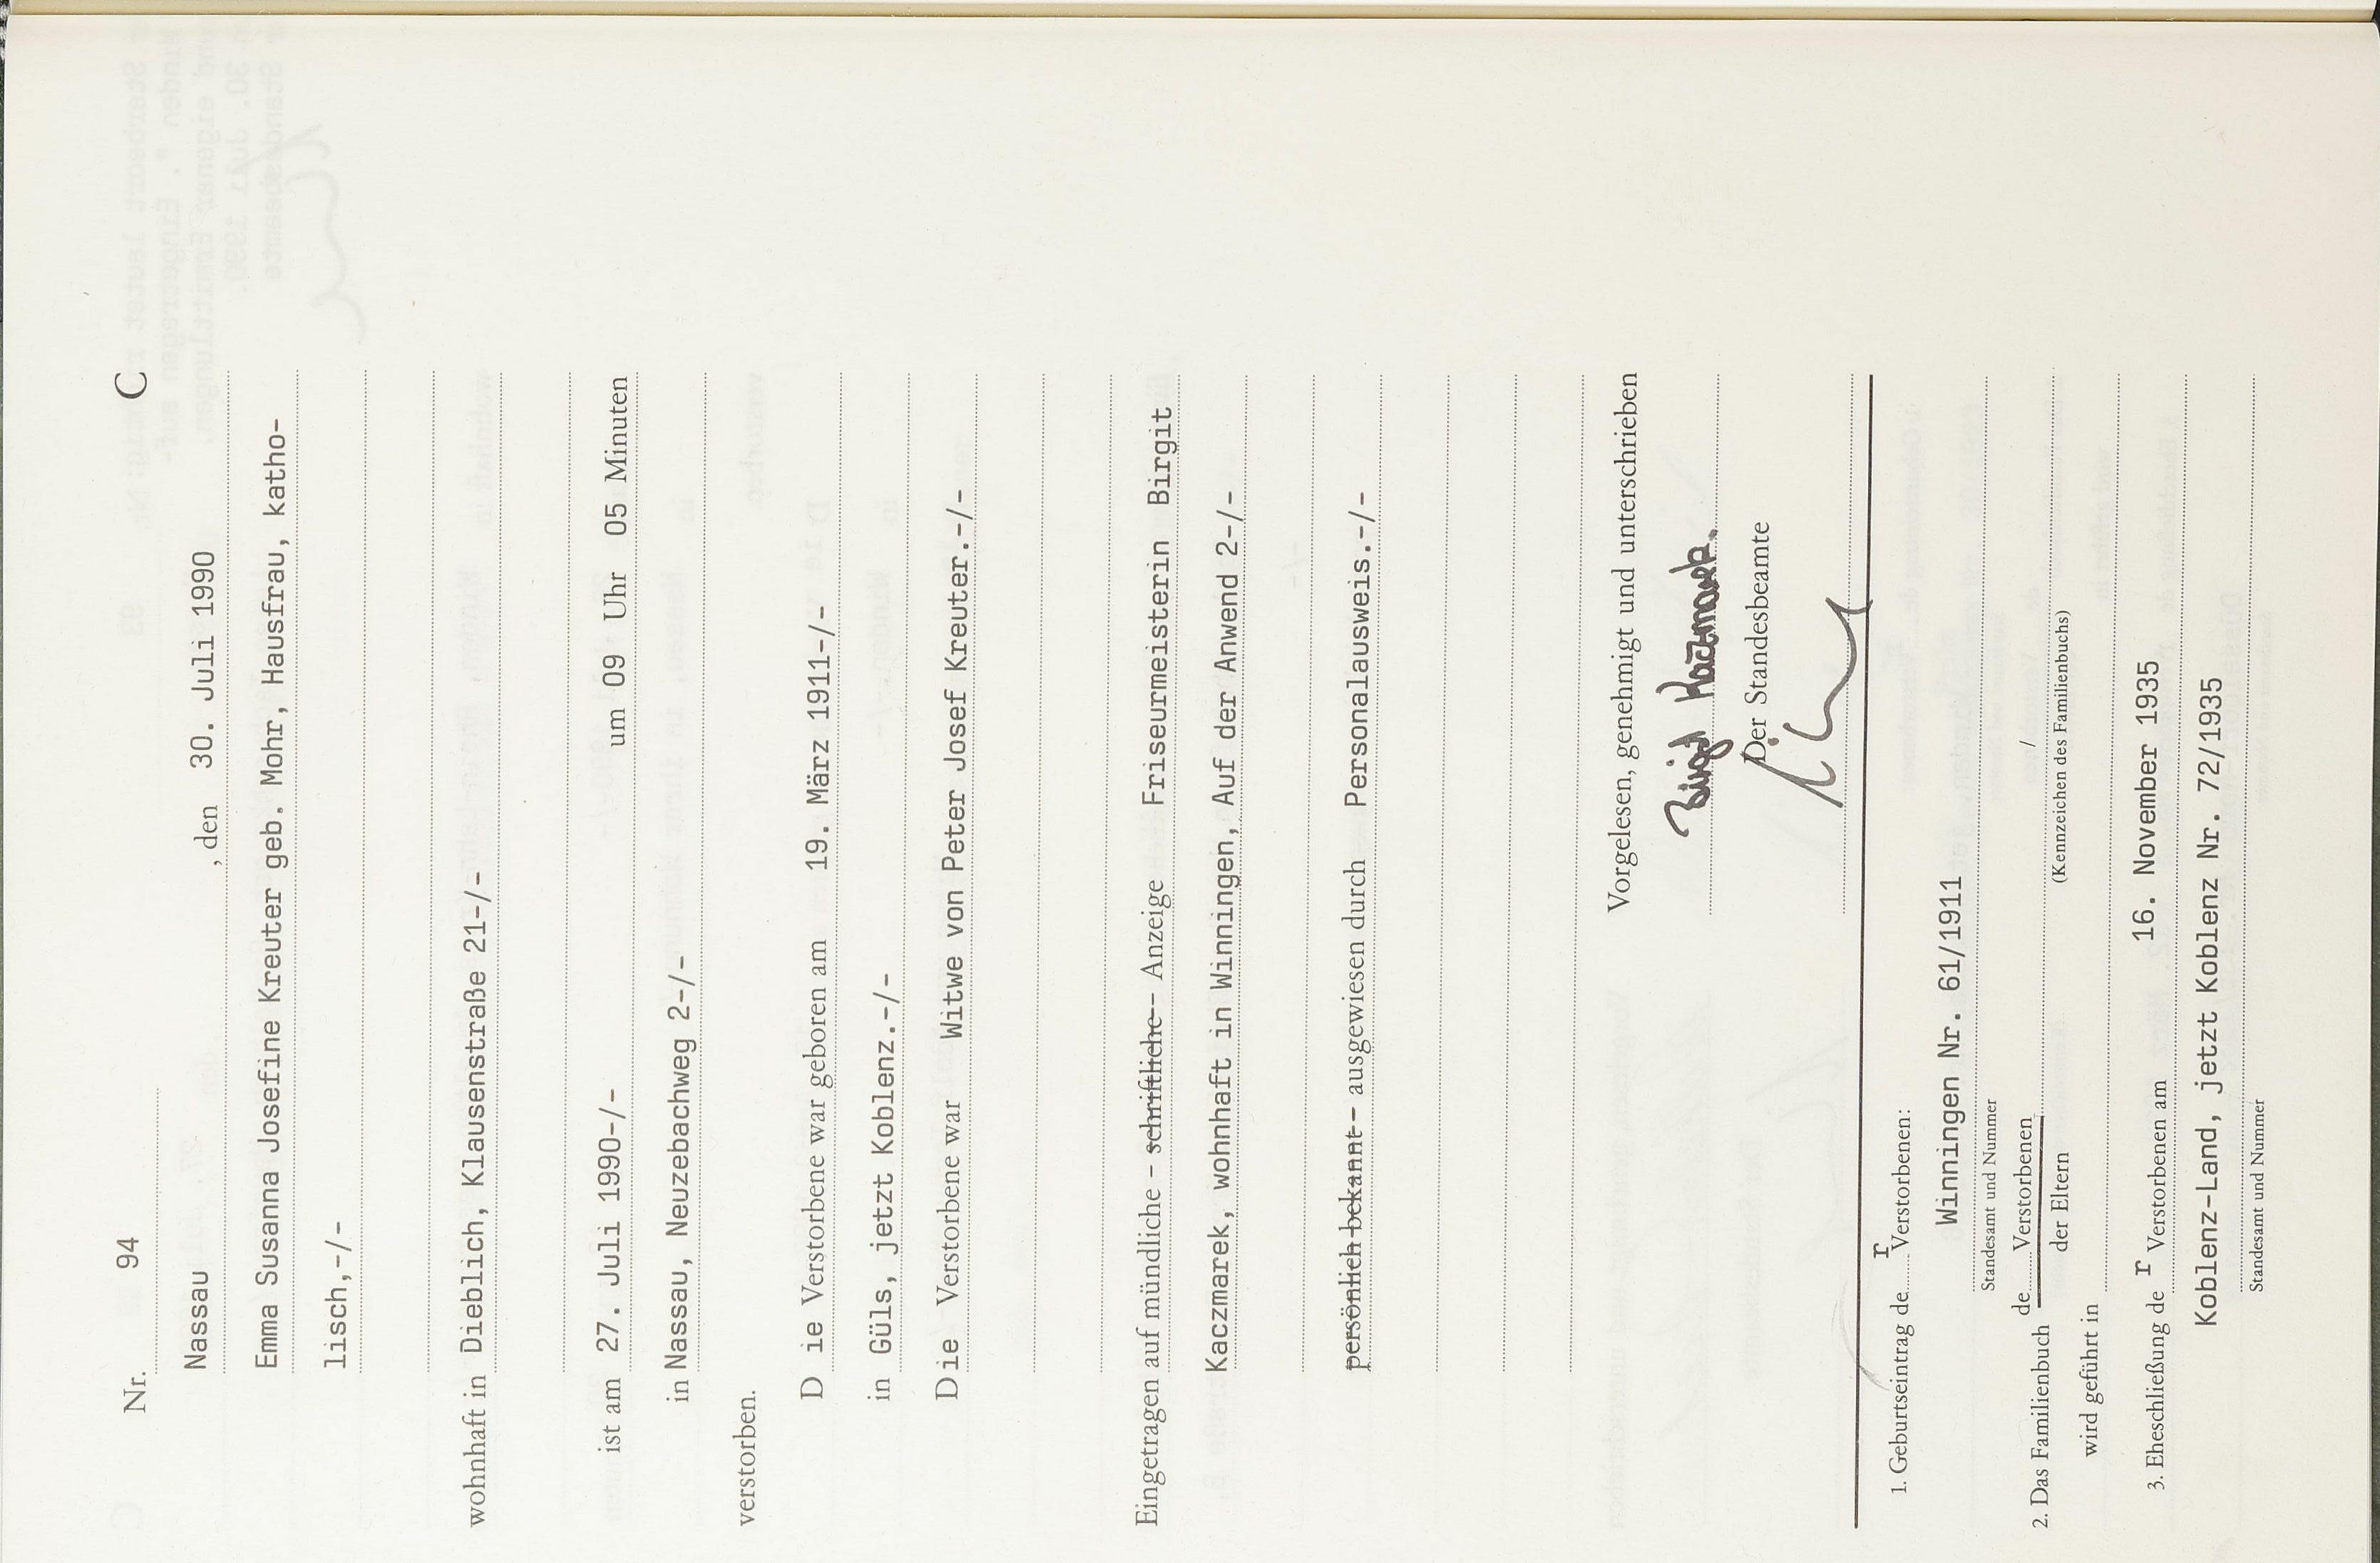 Nr. 94 C
Nassau , den 30. Juli 1990
Emma Susanna Josefine Kreuter geb. Mohr, Hausfrau, katho-
lisch,-/-
wohnhaft in Dieblich, Klausenstraße 21-/-
ist am 27. Juli 1990-/- um 09 Uhr 05 Minuten
in Nassau, Neuzebachweg 2-/-
verstorben.
D ie Verstorbene war geboren am 19. März 1911-/-
in Güls, jetzt Koblenz.-/-
D ie Verstorbene war Witwe von Peter Josef Kreuter.-/-
Eingetragen auf mündliche - schriftliche- Anzeige Friseurmeisterin Birgit
Kaczmarek, wohnhaft in Winningen, Auf der Anwend 2-/-
persönlich bekannt- - ausgewiesen durch Personalausweis.-/-
Vorgelesen, genehmigt und unterschrieben
Birgit Kaczmarek.
Der Standesbeamte
1. Geburtseintrag de r Verstorbenen:
Winningen Nr. 61/1911
Standesamt und Nummer
2. Das Familienbuch de Verstorbenen /
der Eltern (Kennzeichen des Familienbuchs)
wird geführt in
3. Eheschließung de r Verstorbenen am 16. November 1935
Koblenz-Land, jetzt Koblenz Nr. 72/1935
Standesamt und Nummer